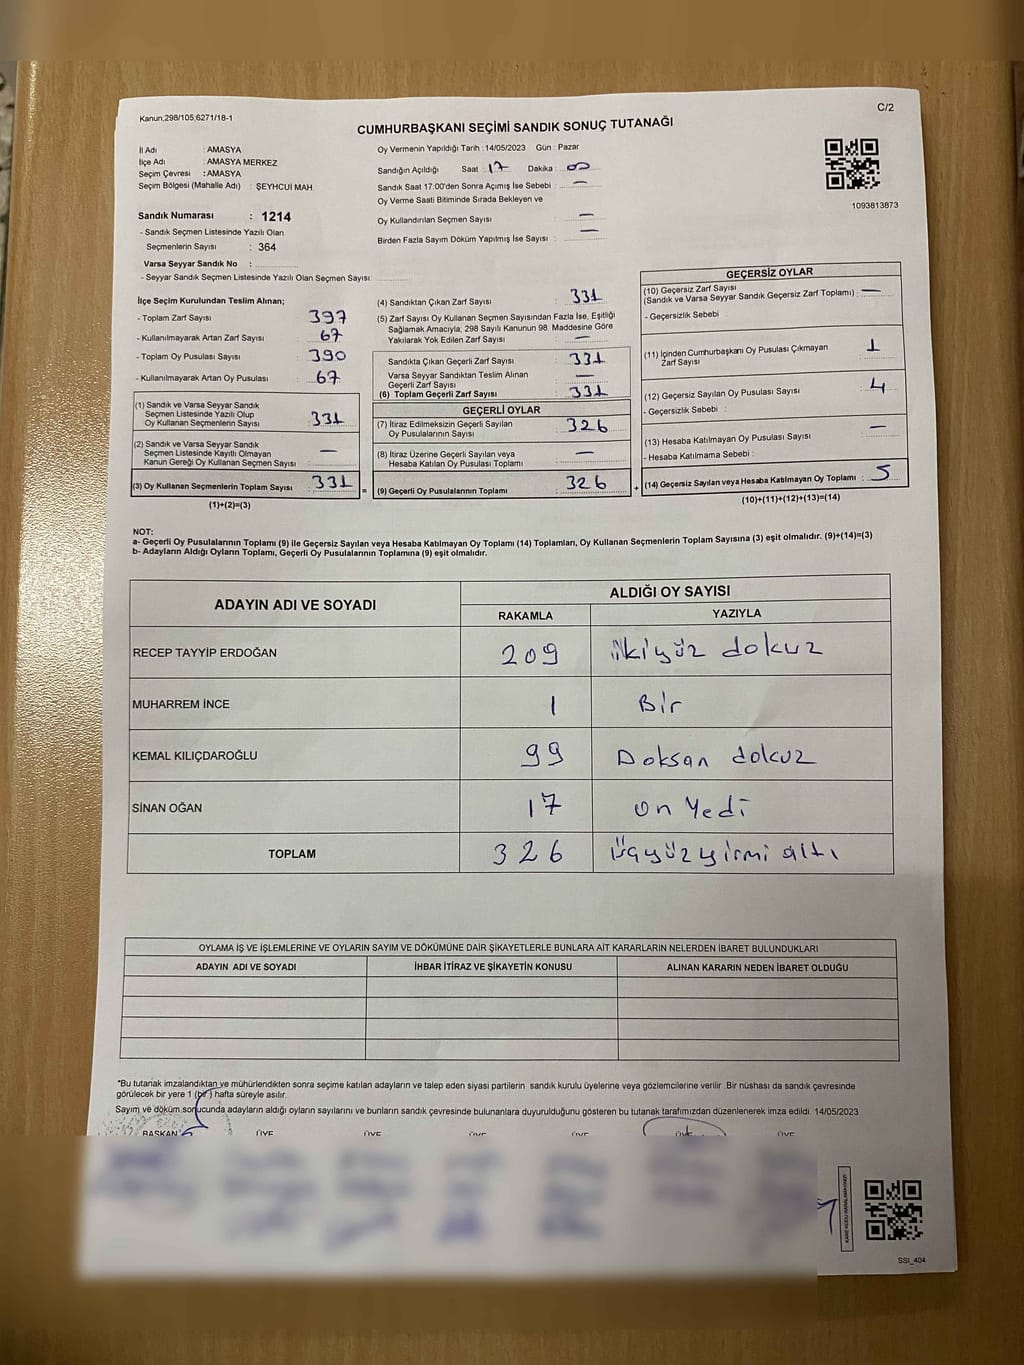 Kanun:298/105,6271/18-1
C/2
CUMHURBAŞKANI SEÇİMİ SANDIK SONUÇ TUTANAĞI
İl Adı : AMASYA
İlçe Adı : AMASYA MERKEZ
Seçim Çevresi : AMASYA
Seçim Bölgesi (Mahalle Adı) : ŞEYHCUİ MAH
Sandık Numarası : 1214
- Sandık Seçmen Listesinde Yazılı Olan
Seçmenlerin Sayısı : 364
Varsa Seyyar Sandık No :
- Seyyar Sandık Seçmen Listesinde Yazılı Olan Seçmen Sayısı:
Oy Vermenin Yapıldığı Tarih : 14/05/2023 Gün : Pazar
Sandığın Açıldığı Saat 17 Dakika : 00
Sandık Saat 17:00'den Sonra Açımış İse Sebebi : —
Oy Verme Saati Bitiminde Sırada Bekleyen ve
Oy Kullandırılan Seçmen Sayısı : —
Birden Fazla Sayım Döküm Yapılmış İse Sayısı : —
1093813873
İlçe Seçim Kurulundan Teslim Alınan;
- Toplam Zarf Sayısı : 397
- Kullanılmayarak Artan Zarf Sayısı : 67
- Toplam Oy Pusulası Sayısı : 390
- Kullanılmayarak Artan Oy Pusulası : 67
(1) Sandık ve Varsa Seyyar Sandık
Seçmen Listesinde Yazılı Olup
Oy Kullanan Seçmenlerin Sayısı : 331
(2) Sandık ve Varsa Seyyar Sandık
Seçmen Listesinde Kayıtlı Olmayan
Kanun Gereği Oy Kullanan Seçmen Sayısı : —
(3) Oy Kullanan Seçmenlerin Toplam Sayısı : 331 =
(1)+(2)=(3)
(4) Sandıktan Çıkan Zarf Sayısı : 331
(5) Zarf Sayısı Oy Kullanan Seçmen Sayısından Fazla İse, Eşitliği
Sağlamak Amacıyla; 298 Sayılı Kanunun 98. Maddesine Göre
Yakılarak Yok Edilen Zarf Sayısı : —
Sandıkta Çıkan Geçerli Zarf Sayısı : 331
Varsa Seyyar Sandıktan Teslim Alınan
Geçerli Zarf Sayısı : —
(6) Toplam Geçerli Zarf Sayısı : 331
GEÇERLİ OYLAR
(7) İtiraz Edilmeksizin Geçerli Sayılan
Oy Pusulalarının Sayısı : 326
(8) İtiraz Üzerine Geçerli Sayılan veya
Hesaba Katılan Oy Pusulası Toplamı : —
(9) Geçerli Oy Pusulalarının Toplamı : 326 +
GEÇERSİZ OYLAR
(10) Geçersiz Zarf Sayısı
(Sandık ve Varsa Seyyar Sandık Geçersiz Zarf Toplamı) : —
- Geçersizlik Sebebi :
(11) İçinden Cumhurbaşkanı Oy Pusulası Çıkmayan
Zarf Sayısı : 1
(12) Geçersiz Sayılan Oy Pusulası Sayısı : 4
- Geçersizlik Sebebi :
(13) Hesaba Katılmayan Oy Pusulası Sayısı : —
- Hesaba Katılmama Sebebi :
(14) Geçersiz Sayılan veya Hesaba Katılmayan Oy Toplamı : 5
(10)+(11)+(12)+(13)=(14)
NOT:
a- Geçerli Oy Pusulalarının Toplamı (9) ile Geçersiz Sayılan veya Hesaba Katılmayan Oy Toplamı (14) Toplamları, Oy Kullanan Seçmenlerin Toplam Sayısına (3) eşit olmalıdır. (9)+(14)=(3)
b- Adayların Aldığı Oyların Toplamı, Geçerli Oy Pusulalarının Toplamına (9) eşit olmalıdır.
ADAYIN ADI VE SOYADI
ALDIĞI OY SAYISI
RAKAMLA YAZIYLA
RECEP TAYYİP ERDOĞAN 209 ikiyüz dokuz
MUHARREM İNCE 1 Bir
KEMAL KILIÇDAROĞLU 99 Doksan dokuz
SİNAN OĞAN 17 on Yedi
TOPLAM 326 üçyüzyirmi altı
OYLAMA İŞ VE İŞLEMLERİNE VE OYLARIN SAYIM VE DÖKÜMÜNE DAİR ŞİKAYETLERLE BUNLARA AİT KARARLARIN NELERDEN İBARET BULUNDUKLARI
ADAYIN ADI VE SOYADI İHBAR İTİRAZ VE ŞİKAYETİN KONUSU ALINAN KARARIN NEDEN İBARET OLDUĞU
*Bu tutanak imzalandıktan ve mühürlendikten sonra seçime katılan adayların ve talep eden siyasi partilerin sandık kurulu üyelerine veya gözlemcilerine verilir .Bir nüshası da sandık çevresinde
görülecek bir yere 1 (bir) hafta süreyle asılır.
Sayım ve döküm sonucunda adayların aldığı oyların sayılarını ve bunların sandık çevresinde bulunanlara duyurulduğunu gösteren bu tutanak tarafımızdan düzenlenerek imza edildi. 14/05/2023
BAŞKAN ÜYE ÜYE ÜYE ÜYE ÜYE ÜYE
KARE KODU KARALAMAYINIZ!
SSI_404